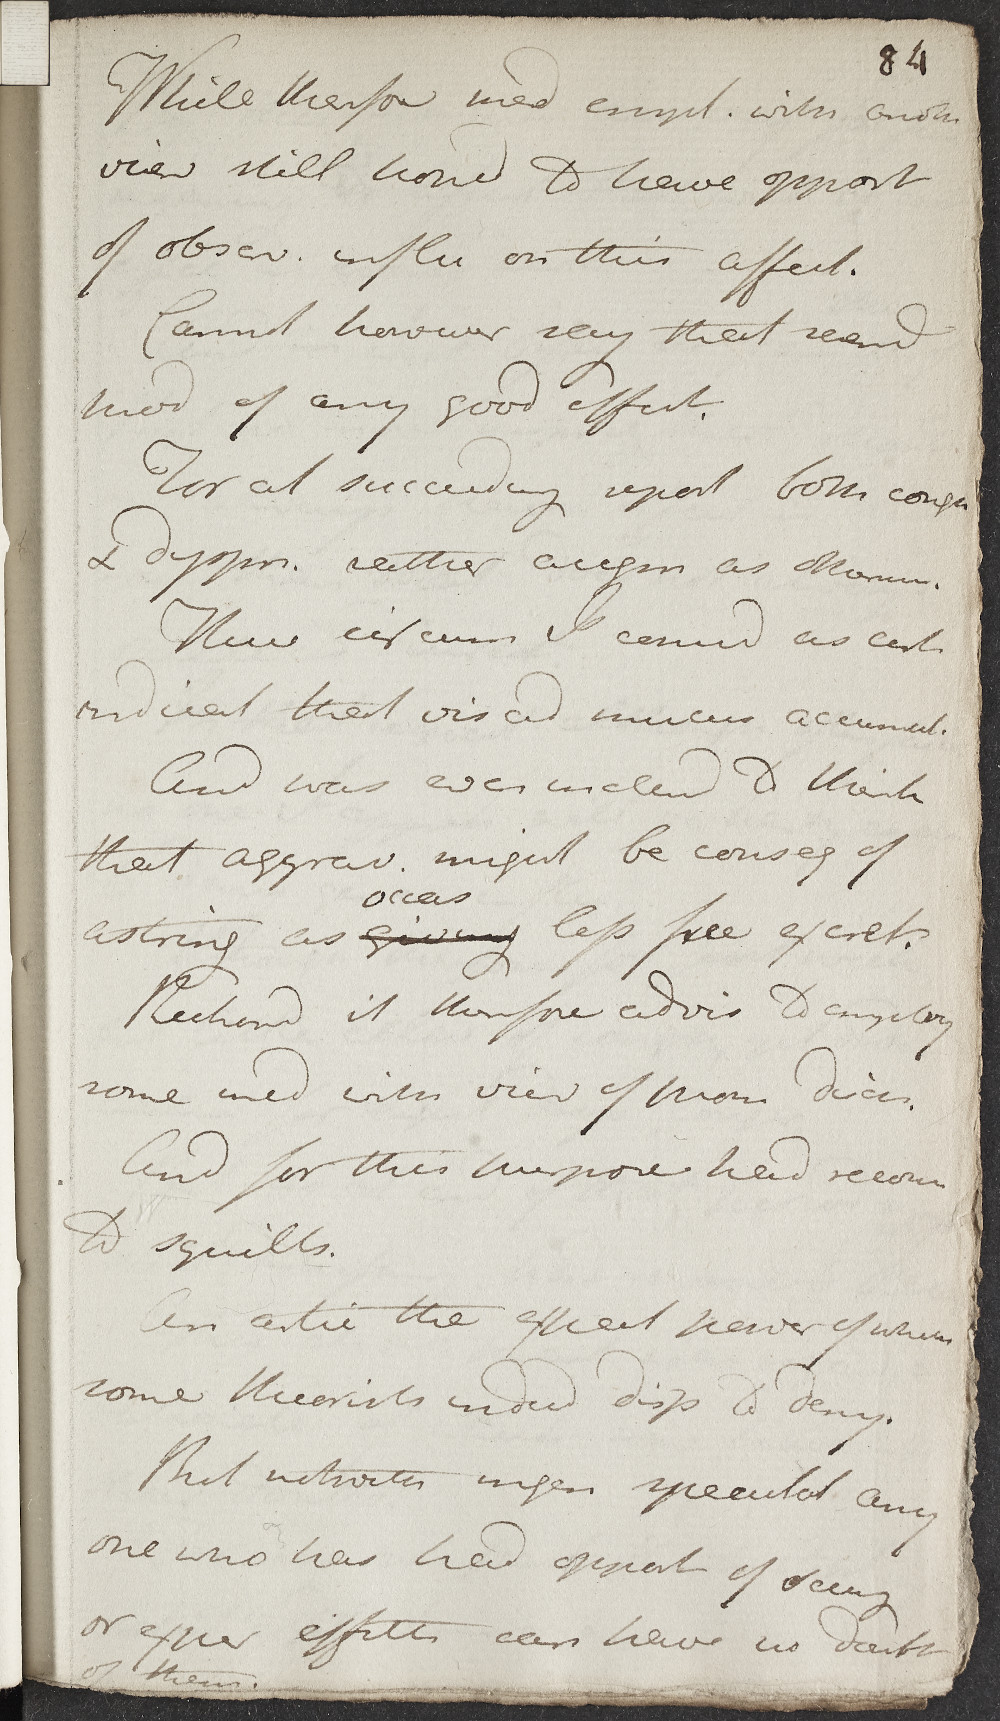 84
While therefor med empl. with anoth
view still hoped to have opport
of observ. influ on this affect.
Cannot however say that rend
mod of any good effect.
For at succeeding report both cough
& dyspn. rather augm as dimin.
These circum I consid as cert
indicat that viscid mucus accumul.
And was even inclend to think
that aggrav. might be conseq of
astring as giving occas less free excret.
Reckond it therefore advis to employ
some med with view of prom disc.
And for this purpose had recour
to squills.
An artic the expect power of which
some theorists indeed disp to deny.
But notwith ingen speculat any
one who has had opport of seeing
or exper effects can have no doubt
of them.